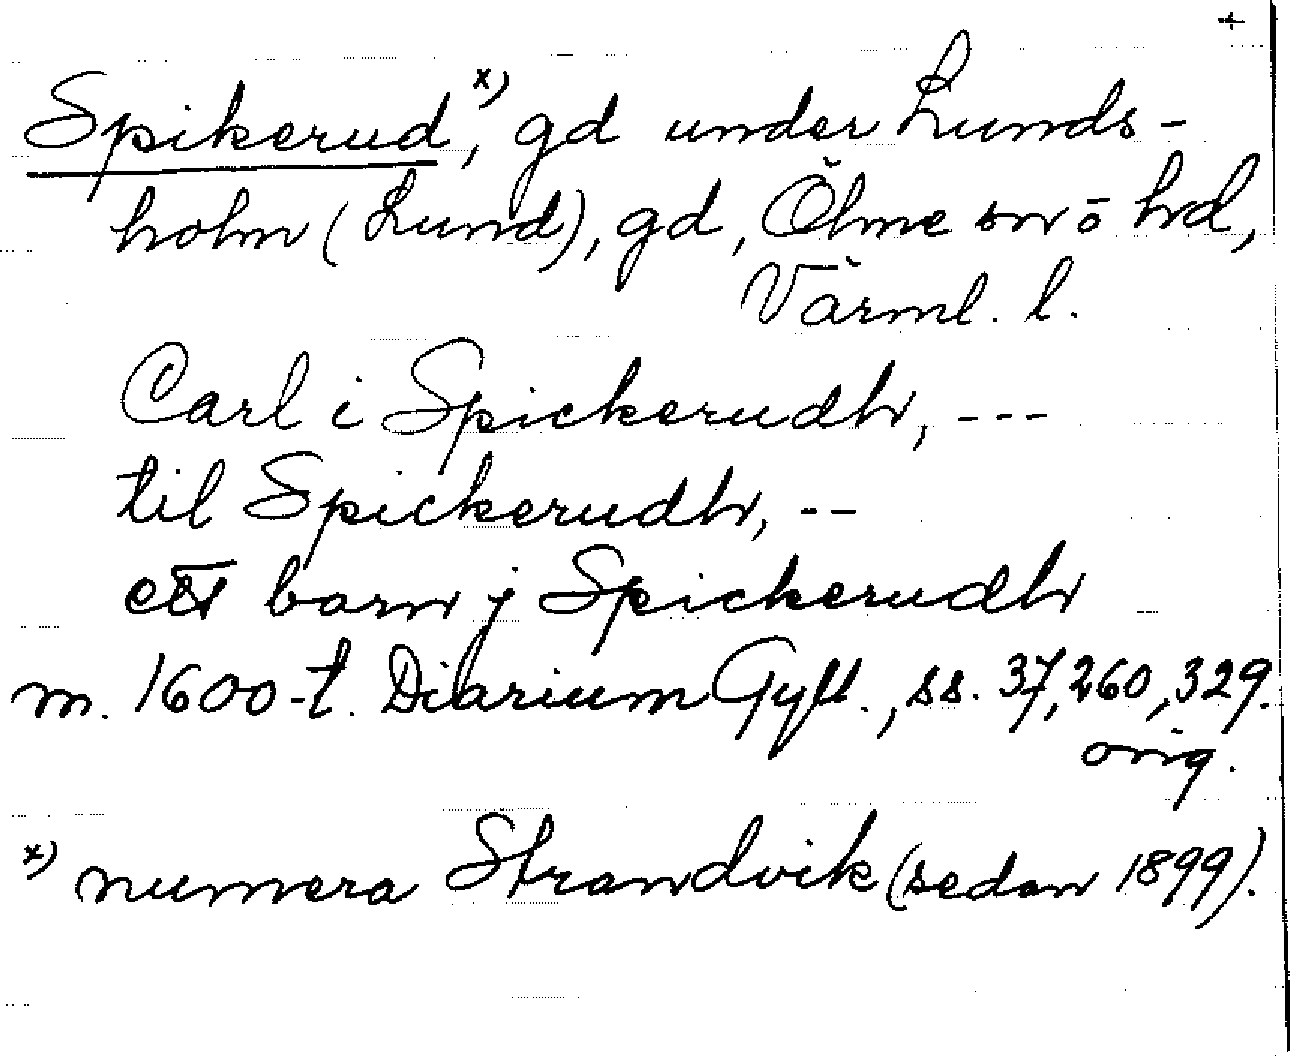 +
Spikerud,ˣ⁾ gd under Lunds-
holm (Lund), gd, Ölme sn o hd,
Värml. l.
Carl i Spickerudh, ---
til Spickerudh, --
ett barn j Spickerudh
m. 1600-t. Diarium Gyll., ss. 37, 260, 329.
orig.
ˣ⁾ numera Strandvik (sedan 1899).